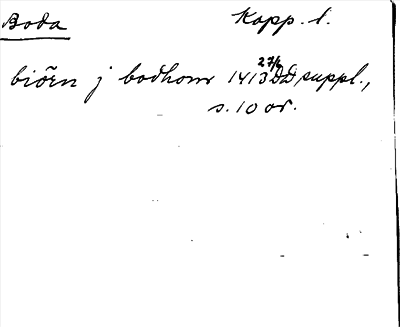 Boda Kopp. l.
biörn j bodhom 1413 27/6 DD suppl.,
s. 10 or.